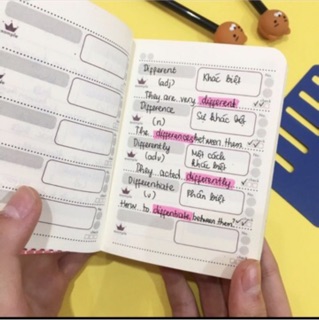 Different
(adj)
Khác biệt
They are very different
Difference
(n)
Sự khác biệt
The differences between them.
Differently
(adv)
Một cách
khác biệt
They acted differently
Differentiate
(v)
Phân biệt
How to differtiate between them?